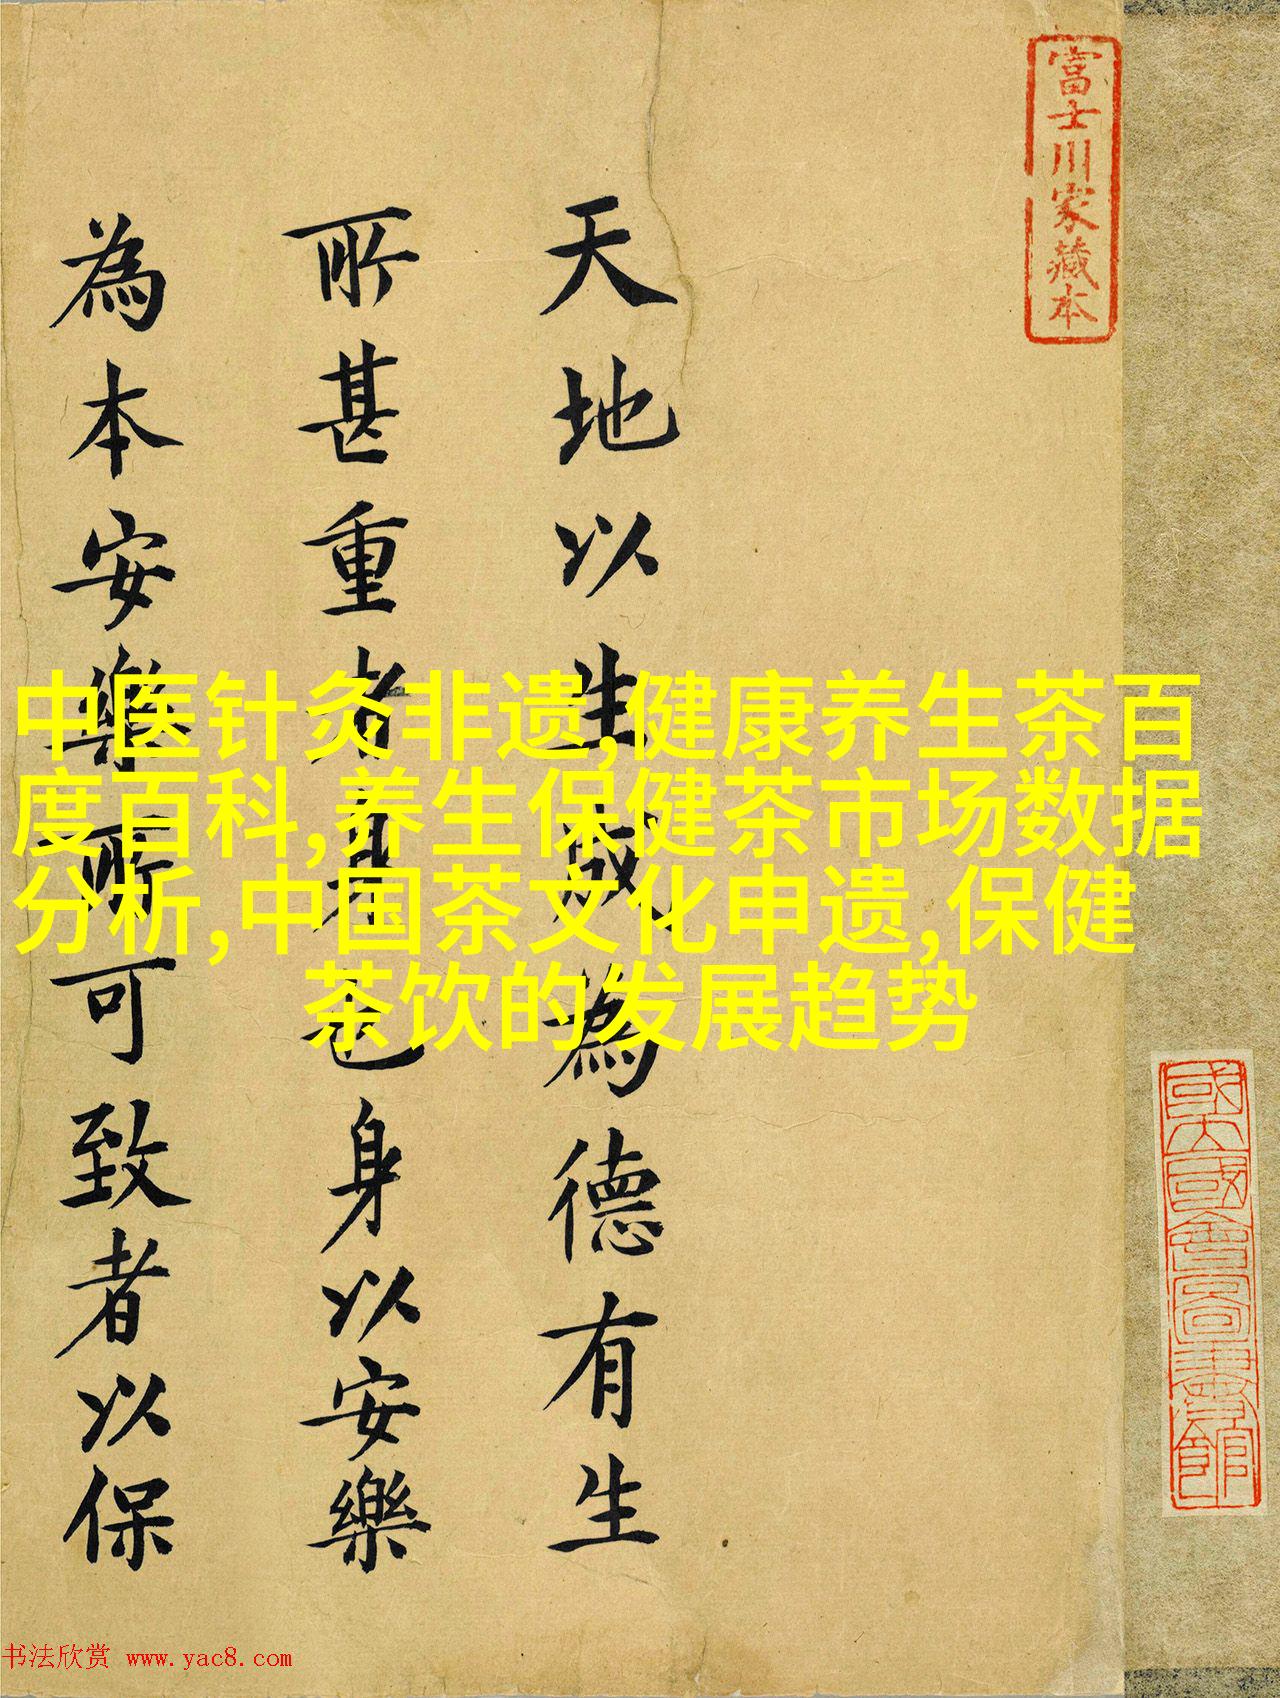 富士川家藏本
國立國會圖書館
天地以生成為德有生
所甚重者身也身以安樂
為本安樂所可致者以保
中医针灸非遗,健康养生茶百
度百科,养生保健茶市场数据
分析,中国茶文化申遗,保健
茶饮的发展趋势
书法欣赏 www.yac8.com